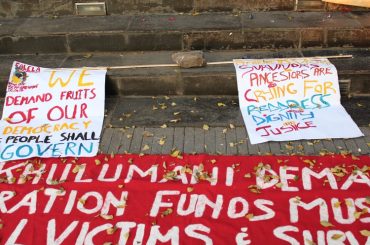 WE
DEMAND FRUITS
OF OUR
DEMOCRACY
PEOPLE SHALL
GOVERN
SURVIVORS
ANCESTORS ARE
CRYING FOR
REDRESS
DIGNITY
JUSTICE
KHULUMANI DEMA
RATION FUNDS MUS
L VICTIMS & SURV